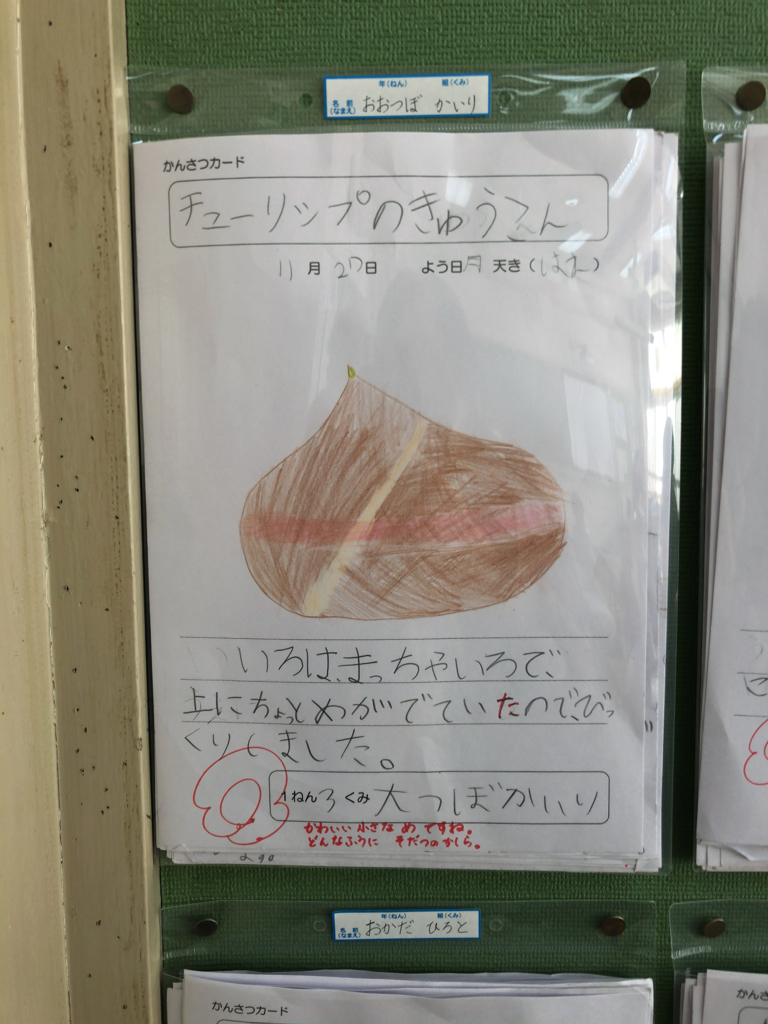 年(ねん) 組(くみ)
名前(なまえ) おおつぼ かいり
かんさつカード
チューリップのきゅうこん
11月27日 よう日月 天き(はれ)
いろは、まっちゃいろで、
上にちょっとめがでていたので、びっ
くりしました。
1ねん3くみ 大つぼかいり
かわいい小さな め ですね。
どんなふうに そだつのかしら。
年(ねん) 組(くみ)
名前(なまえ) おかだ ひろと
かんさつカード